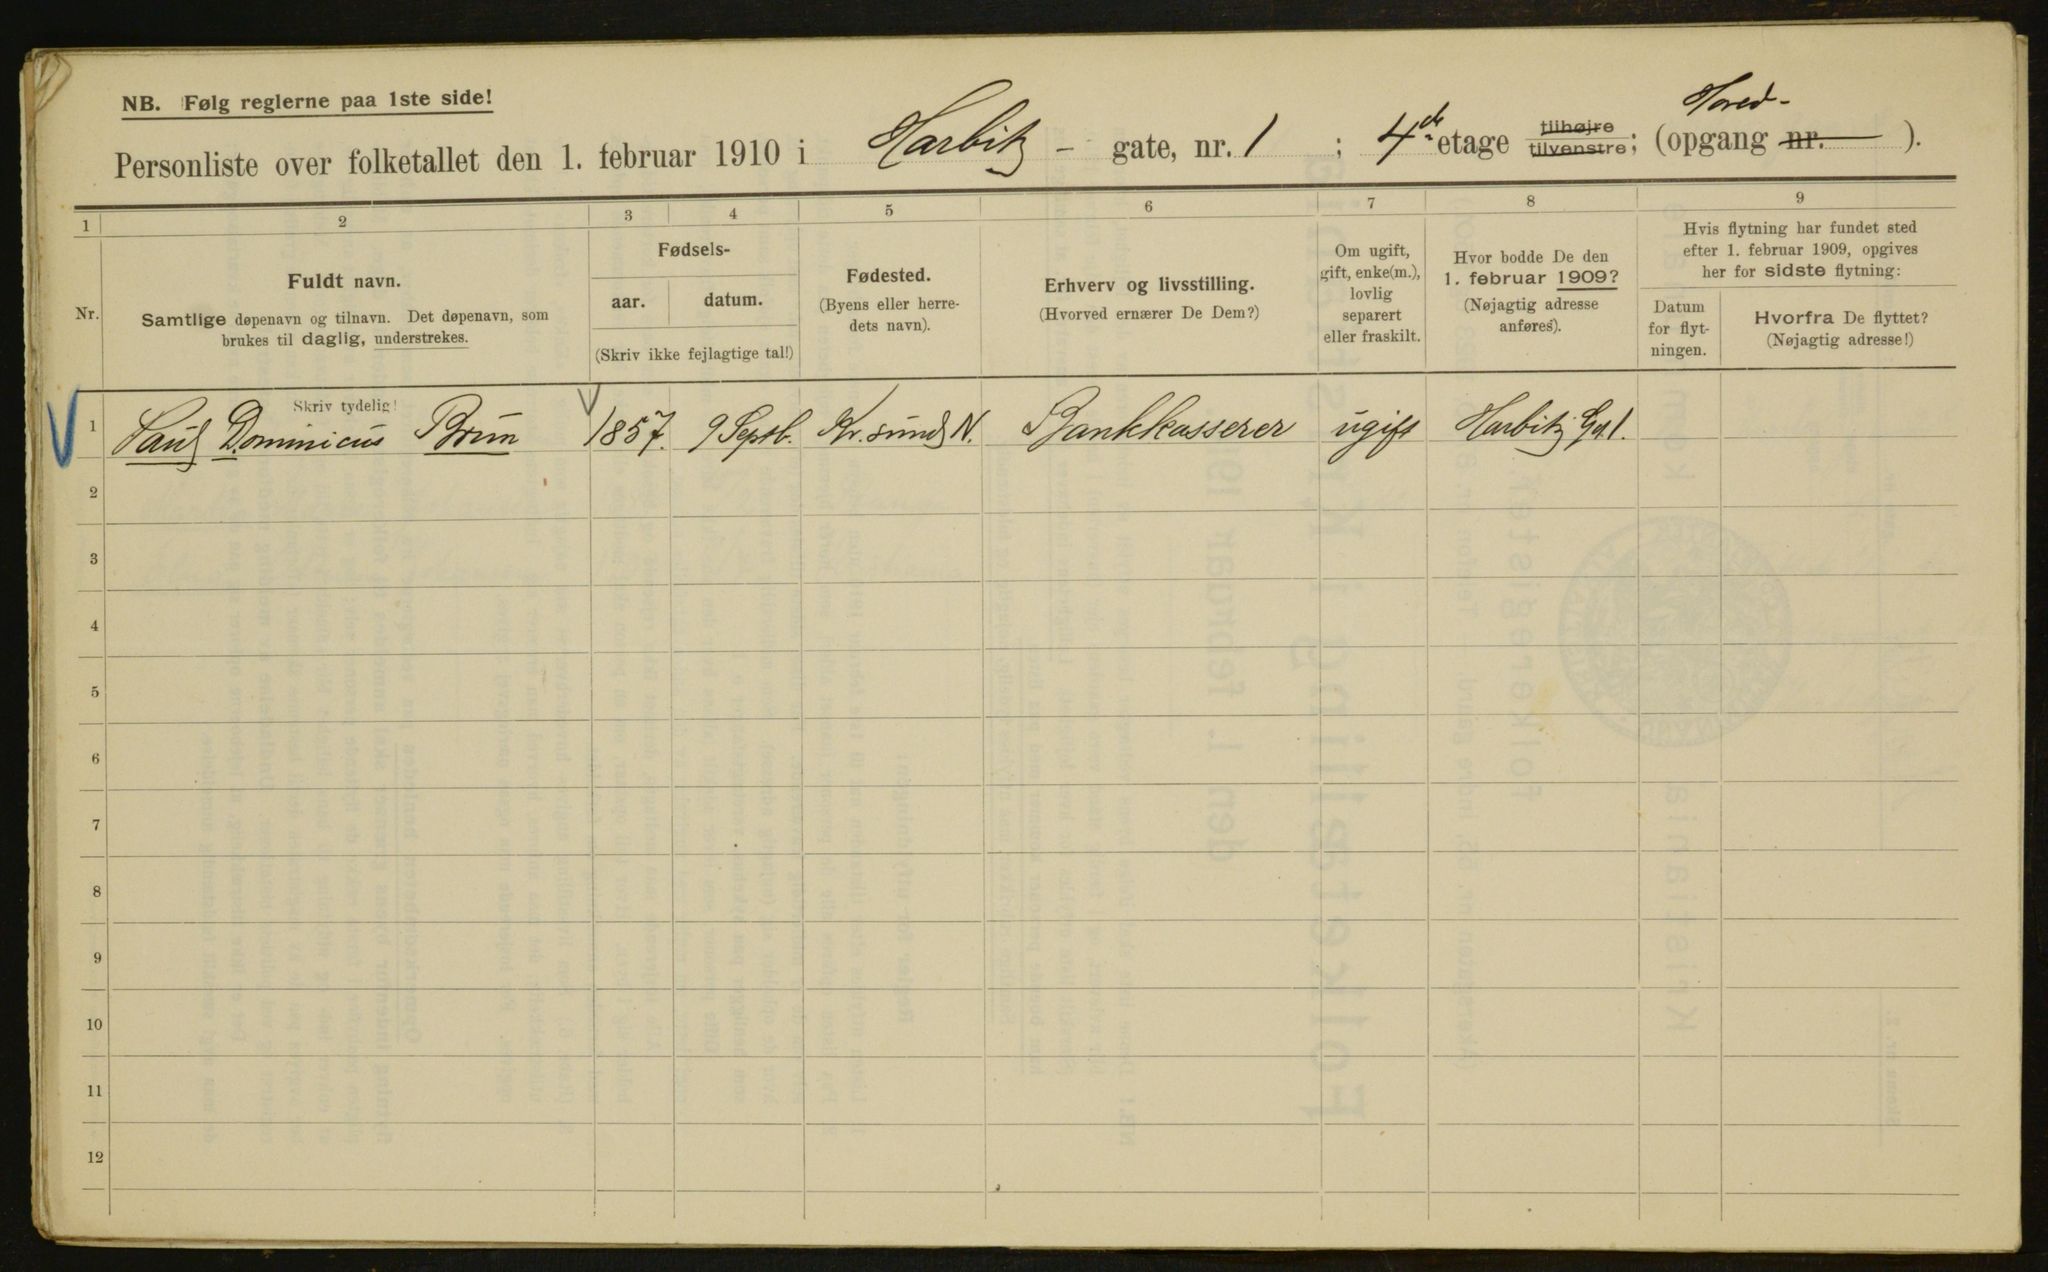 NB. Følg reglerne paa 1ste side!
Hoved-
Personliste over folketallet den 1. februar 1910 i Harbitz - gate, nr. 1 ; 4de etage tilhøjre tilvenstre; (opgang nr. ).
1 2 3 4 5 6 7 8 9
Nr.
Fuldt navn.
Samtlige døpenavn og tilnavn. Det døpenavn, som
brukes til daglig, understrekes.
Fødsels-
aar. datum.
(Skriv ikke fejlagtige tal!)
Fødested.
(Byens eller herre-
dets navn).
Erhverv og livsstilling.
(Hvorved ernærer De Dem?)
Om ugift,
gift, enke(m.),
lovlig
separert
eller fraskilt.
Hvor bodde De den
1. februar 1909?
(Nøjagtig adresse
anføres).
Hvis flytning har fundet sted
efter 1. februar 1909, opgives
her for sidste flytning:
Datum
for flyt-
ningen.
Hvorfra De flyttet?
(Nøjagtig adresse!)
Skriv tydelig!
1 Paul Dominicus Brun 1857. 9 Septb. Kr.sund N. Bankkasserer ugift Harbitz Gd 1.
2
3
4
5
6
7
8
9
10
11
12